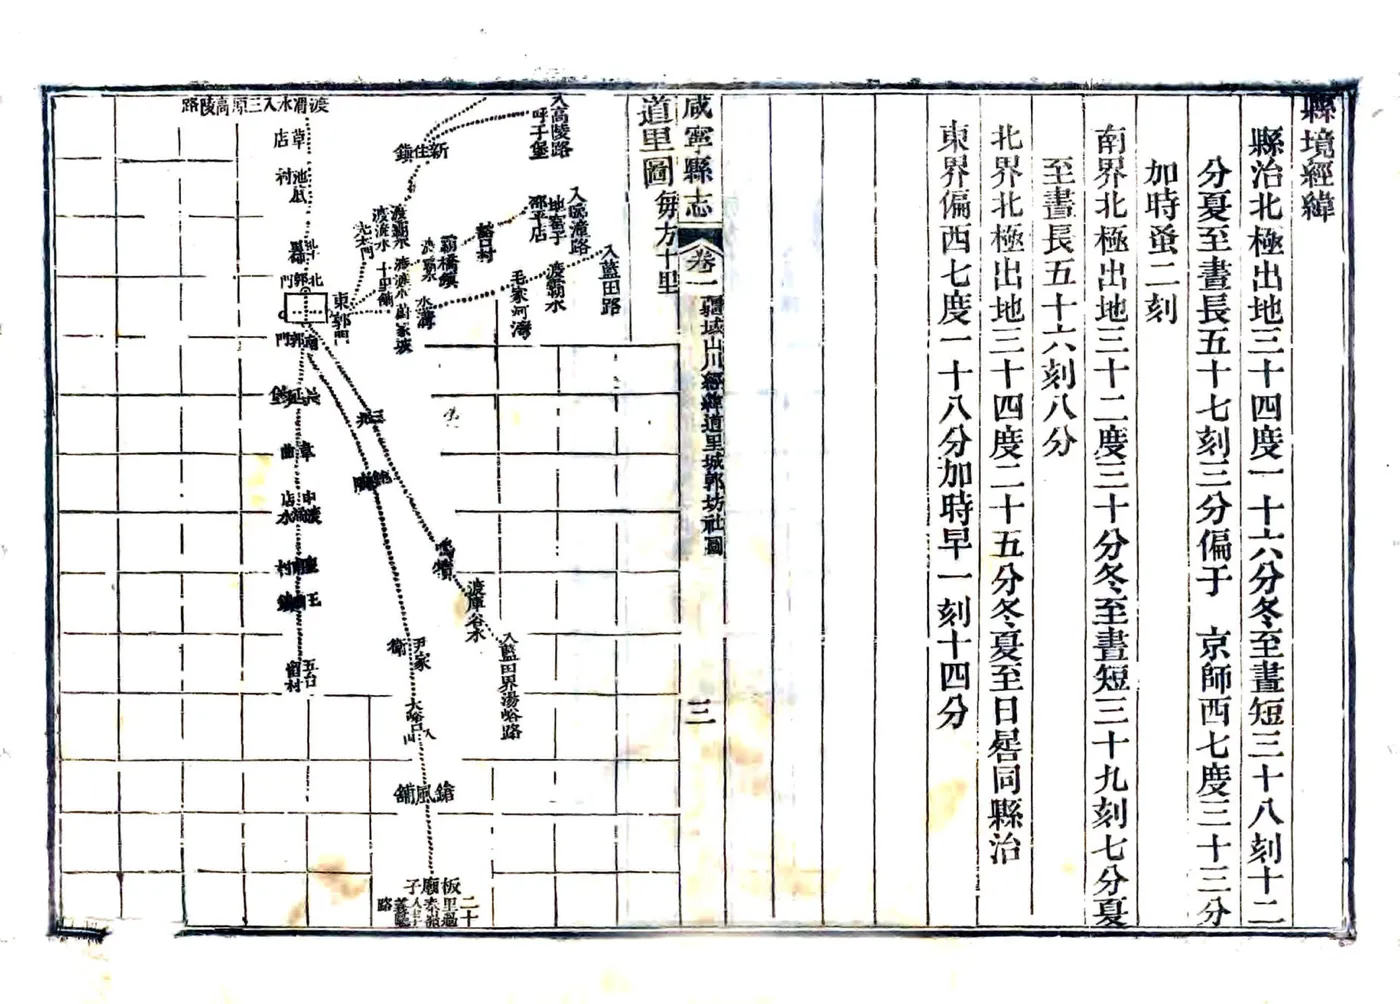 縣境經緯
縣治北極出地三十四度一十六分冬至晝短三十八刻十二
分夏至晝長五十七刻三分偏于　京師西七度三十三分
加時蚤二刻
南界北極出地三十二度三十分冬至晝短三十九刻七分夏
至晝長五十六刻八分
北界北極出地三十四度二十五分冬夏至日晷同縣治
東界偏西七度一十八分加時早一刻十四分
咸寧縣志
卷一
疆域山川經緯道里城郭坊社圖
三
道里圖每方十里
入高陵路
呼子堡
新住鎮
渡渭水入三原高陵路
草店
入臨潼路
邵平店
豁口村
入藍田路
渡霸水
毛家河灣
霸橋鎮
渡霸水
渡滻水
十里鋪
東郭門
北郭門
南郭門
三兆
鮑陂
韋曲
鳴犢
渡庫谷水
入藍田界湯峪路
尹家衛
大峪口
入山
五台
留村
板廟子
二十里過秦嶺
路